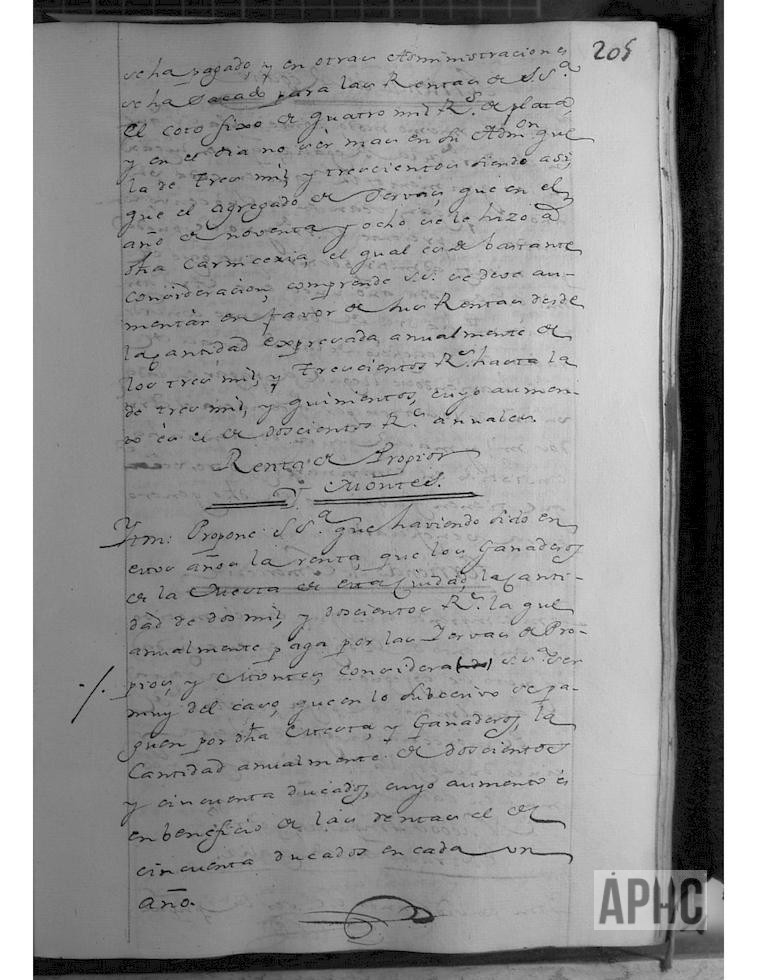 205
se ha pagado, y en otras Administraciones
se ha sacado para las Rentas de S.S.ª
el coto fixo de quatro mil R.s de plata,
y en el dia no ser mas en su Adm.on que
la de tres mil, y trescientos siendo asi,
que el agregado de Servas, que en el
año de noventa y ocho se le hizo á
dha Carniceria, el qual es de bastante
consideracion, comprende S.S. se deve au-
mentar en favor de sus Rentas desde
la Cantidad expresada anualmente de
los tres mil, y trescientos R.s hasta la
de tres mil, y quinientos, cuyo aumen-
to es el de doscientos R.s anuales.
Renta de Propios
y Montes.
Ytm: Propone S.S.ª que haviendo sido en
estos años la renta, que los Ganaderos
de la Cuesta de esta Ciudad, la Canti-
dad de dos mil, y doscientos R.s la que
anualmente paga por las Yervas de Pro-
pios, y Montes, considera S.S.ª ser
muy del caso, que en lo subcesivo se pa-
guen por dha Cuesta, y Ganaderos, la
Cantidad anualmente de doscientos
y cincuenta ducados, cuyo aumento es
en beneficio de las Rentas el de
cincuenta ducados en cada un
año.
APHC